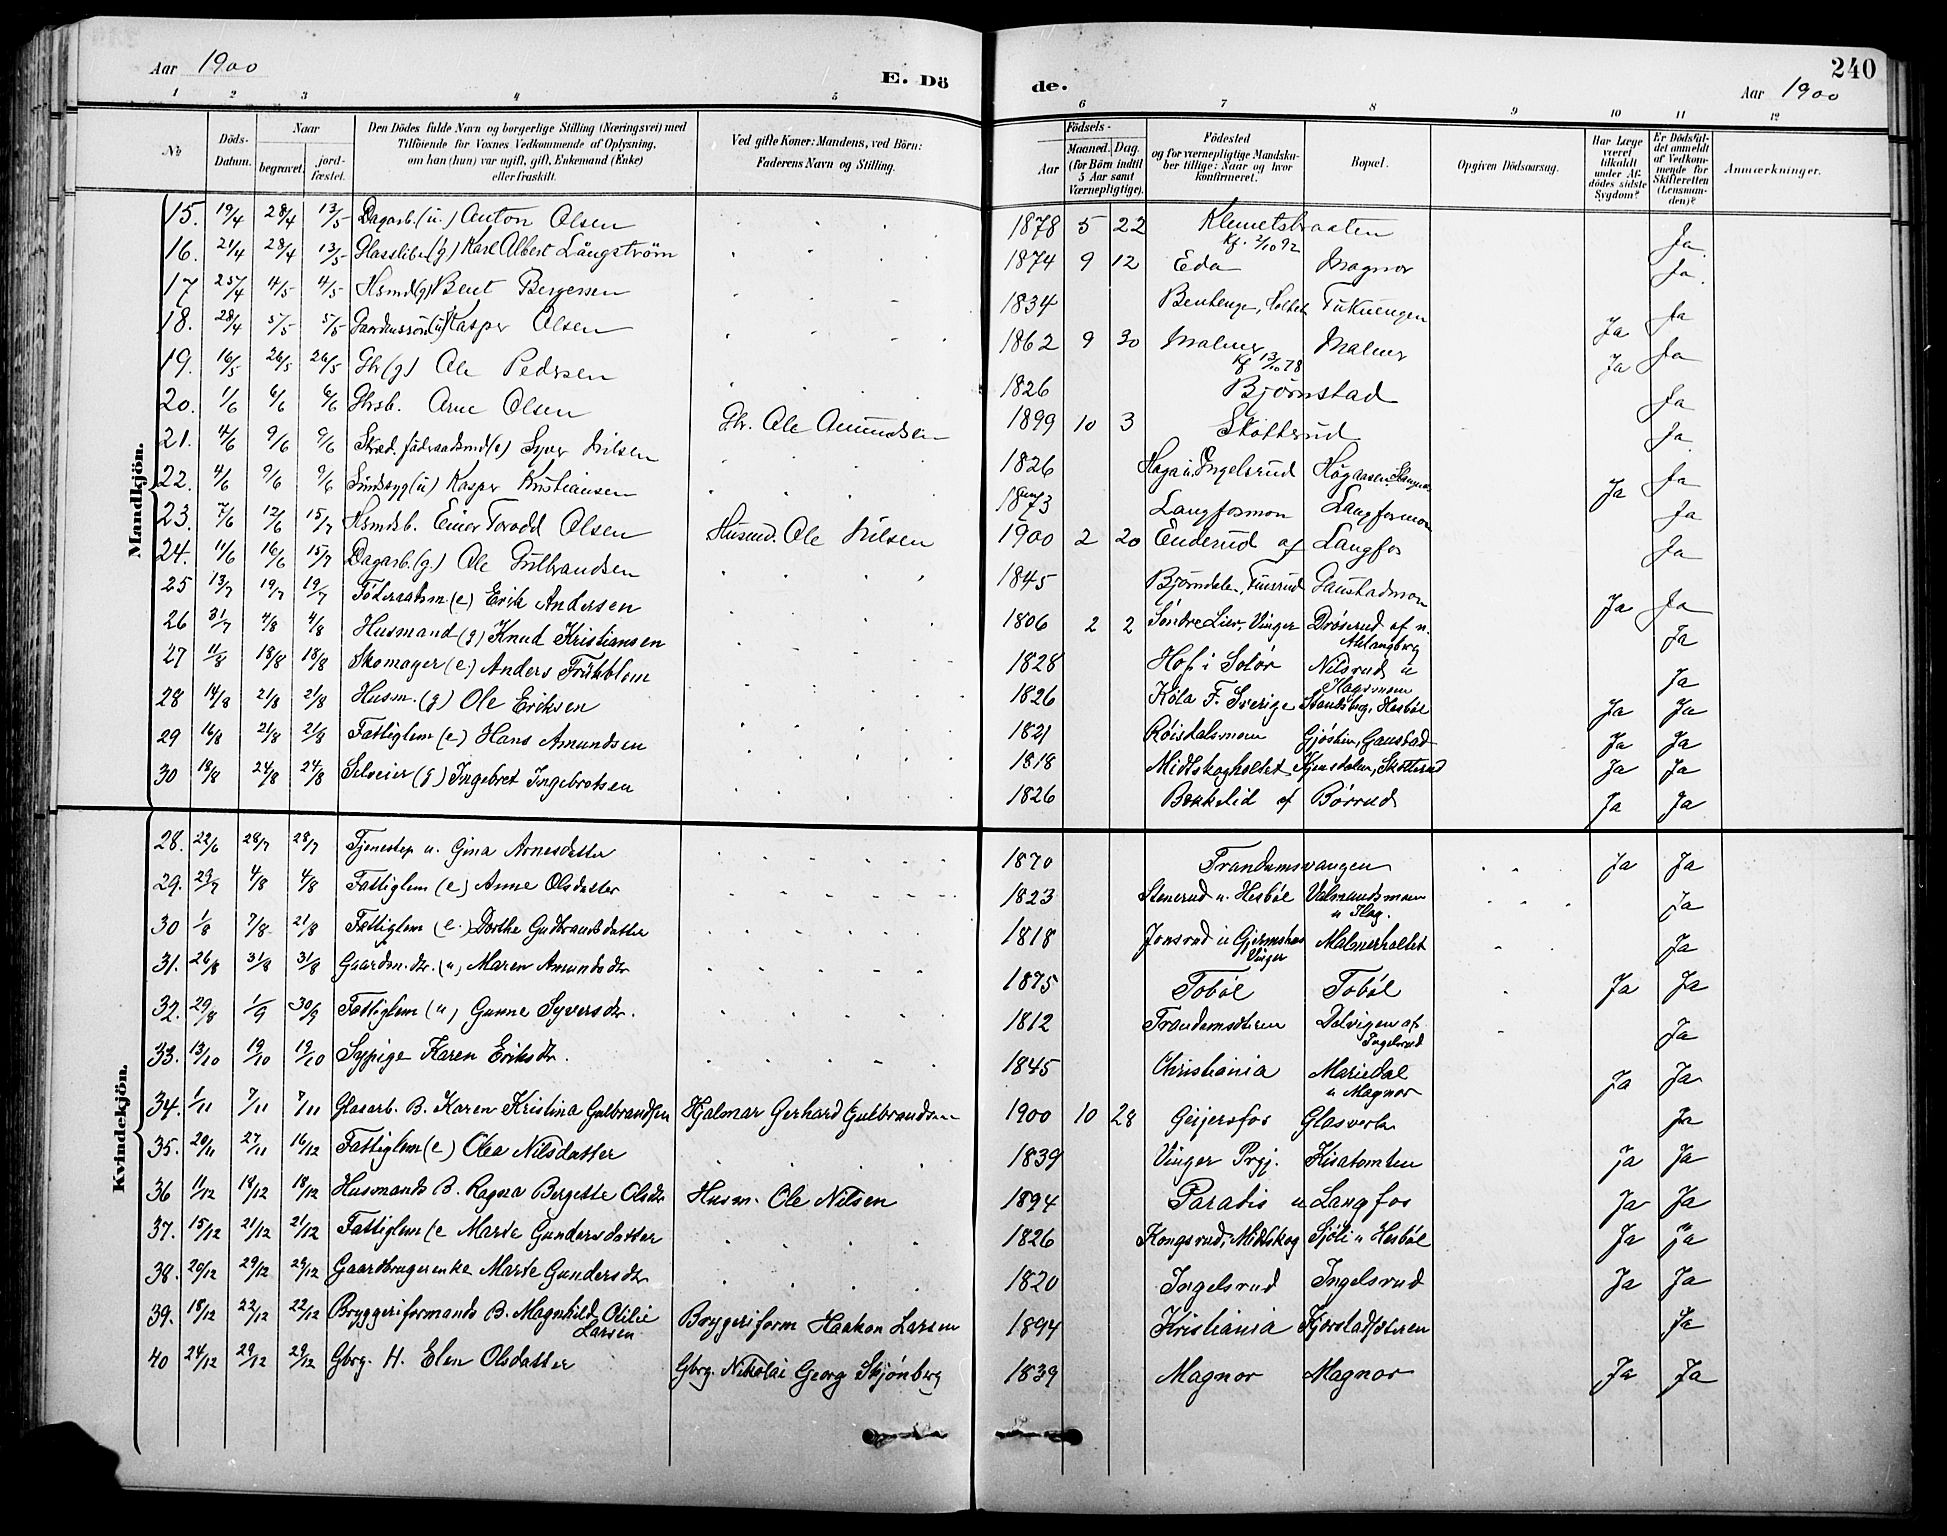 Aar 1900
E. Dö
de.
240
Aar 1900
1 2 3 4 5 6 7 8 9 10 11 12
No
Döds-Datum.
Naar
begravet.
jord-fæstet.
Den Dödes fulde Navn og borgerlige Stilling (Næringsvei) med
Tilföiende for Voxnes Vedkommende af Oplysning,
om han (hun) var ugift, gift, Enkemand (Enke)
eller fraskilt.
Ved gifte Koner: Mandens, ved Börn:
Faderens Navn og Stilling.
Födsels-
Aar
Maaned. Dag.
(for Börn indtil 5 Aar samt Værnepligtige).
Födested
og for værnepligtige Mandskaber tillige: Naar og hvor konfirmeret.
Bopæl.
Opgiven Dödsaarsag.
Har Læge været tilkaldt under Afdödes sidste Sygdom?
Er Dödsfaldet anmeldt af Vedkommende for Skifteretten (Lensmanden)?
Anmærkninger.
Mandkjön.
15. 19/4 28/4 13/5 Dagarb. (u.) Anton Olsen 1878 5 22 Klemetsbraaten Kf. 2/10 92 Ja
16. 21/4 28/4 13/5 Glassliber (g) Karl Albert Långström 1874 9 12 Eda Magnor Ja.
17 25/4 4/5 4/5 Hsmd (g) Bent Bergersen 1834 Ja
18. 28/4 5/5 5/5 Gaardmssön (u) Kasper Olsen 1862 9 30 Malmer Kf 13/10 78 Malmer Ja Ja
19. 16/5 26/5 26/5 Gbr (g) Ole Pedersen 1826 Björnstad Ja Ja
20. 1/6 6/6 6/6 Gbrsb. Arne Olsen Gbr. Ole Amundsen 1899 10 3 Skotterud Ja
21. 4/6 9/6 9/6 Syver Nilsen 1826 Haga u. Ingelsrud Ja
22. 4/6 9/6 9/6 Sindssyg (u) Kasper Kristiansen 1873 Langfosmon Langfosmon Ja Ja
23. 7/6 12/6 15/7 Hsmdsb. Einar Torvald Olsen Husmd. Ole Nilsen 1900 2 20 Enderud af Langfos Ja
24. 11/6 16/6 15/7 Dagarb. (g.) Ole Gulbrandsen 1845 Gaustadmon Ja
25 13/7 19/7 19/7 Föderaadsm. (e) Erik Andersen 1806 2 2 Söndre Lier, Vinger Ja Ja
26 31/7 4/8 4/8 Husmand (g) Knud Kristiansen 1828 Hof i Solör Ja
27 11/8 18/8 18/8 Skomager (e.) Anders Frükblom 1826 Köla F. Sverige Ja
28 14/8 21/8 21/8 Husm. (g) Ole Eriksen 1821 Röisdalsmoen Ja Ja
29 16/8 21/8 21/8 Fattiglem (e) Hans Amundsen 1818 Midtskogholtet Ja Ja
30 18/8 24/8 24/8 Selveier (g) Ingebret Ingebretsen 1826 Bekkelid af Börrud Ja Ja
Kvindekjön.
28. 22/6 28/7 28/7 Tjenestep u. Gina Arnesdatter 1870 Trandemsvangen Ja Ja
29. 29/7 4/8 4/8 Fattiglem (e) Anne Olsdatter 1823 Stenerud u. Hesböl Valmandsmoen Ja
30 1/8 7/8 21/8 Fattiglem (e.) Dorthe Gudbrandsdatter 1818 Malmerholtet Ja
31. 26/8 31/8 31/8 Gaardm. dr. (u) Maren Amundsdr 1875 Toböl Toböl Ja Ja
32. 29/8 1/9 30/9 Fattiglem (u) Gunne Syversdr. 1812 Dalvigen af Ingelsrud Ja
33. 13/10 19/10 19/10 Sypige Karen Eriksdr. 1845 Christiania Mariedal u Magnor Ja Ja
34. 1/11 7/11 7/11 Glasarb. B. Karen Kristina Gulbrandsen Hjalmar Gerhard Gulbrandsen 1900 10 28 Geijersfos Glasverk Ja
35. 20/11 27/11 16/12 Fattiglem (e) Olea Nilsdatter 1839 Vinger Prgj. Kisatomten Ja Ja
36 11/12 18/12 18/12 Husmands B. Ragna Bergette Olsdr Husm. Ole Nilsen 1894 Paradis u Langfos Ja Ja
37. 15/12 21/12 21/12 Fattiglem (e Marte Gundersdatter 1826 Kongsrud, Midtskog Sjöli u Hesböl Ja Ja
38. 20/12 29/12 29/12 Gaardbrugerenke Marte Gundersdr 1820 Ingelsrud Ingelsrud Ja Ja
39. 18/12 22/12 22/12 Bryggeriformands B. Magnhild Otilie Larsen Bryggeriform Haakon Larsen 1894 Kristiania Ja
40 24/12 29/12 29/12 Gbrg. H. Elen Olsdatter Gbrg. Nikolai Georg Skjönberg 1839 Magnor Magnor Ja Ja